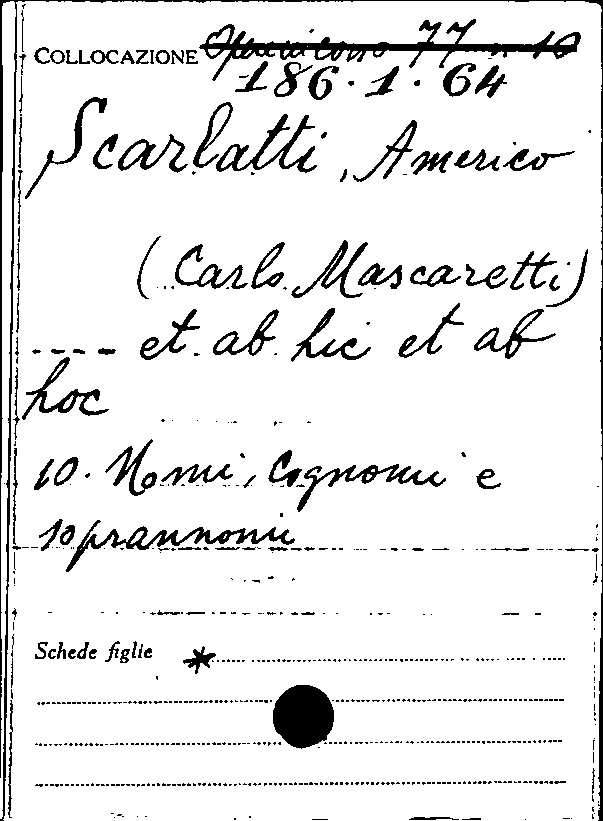 COLLOCAZIONE 77 n 10
186.1.64
Scarlatti, Americo
(Carlo Mascaretti)
---- et ab hic et ab
hoc
10. Nomi, Cognomi e
soprannomi
Schede figlie *